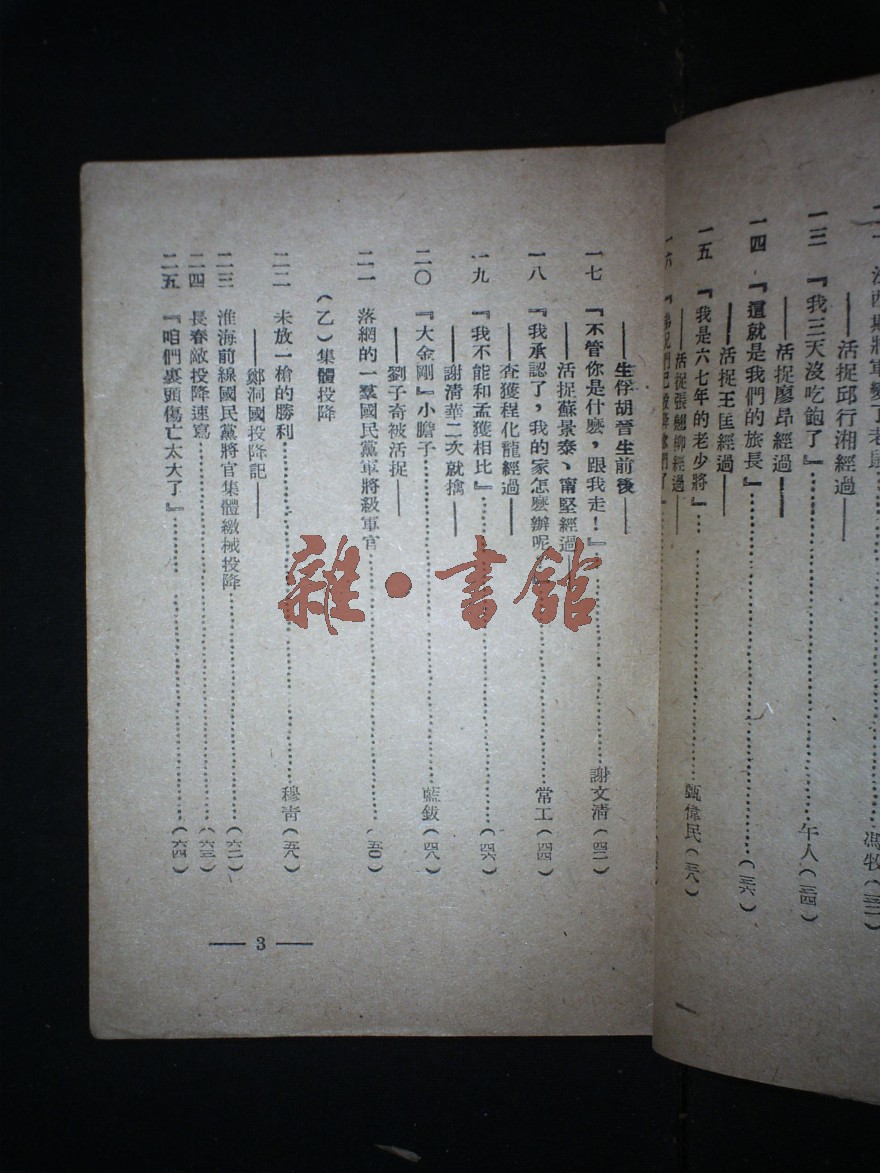 ——活捉邱行湘經過——
馮牧(三二)
一三 『我三天沒吃飽了』……午人(三四)
——活捉廖昂經過——
一四 『這就是我們的旅長』……(三六)
——活捉王匡經過——
一五 『我是六七年的老少將』……甄偉民(三八)
——活捉張翹柳經過——
一六
——生俘胡晉生前後——
一七 『不管你是什麽,跟我走!』……謝文清(四二)
——活捉蘇景泰、甯堅經過——
一八 『我承認了,我的家怎麽辦呢……常工(四四)
——查獲程化龍經過——
一九 『我不能和孟獲相比』……(四六)
——謝清華二次就擒——
二〇 『大金剛』小膽子……藍鈸(四八)
——劉子奇被活捉——
二一 落網的一羣國民黨軍將級軍官……(五〇)
(乙)集體投降
二二 未放一槍的勝利……穆青(五八)
——鄭洞國投降記——
二三 淮海前線國民黨將官集體繳械投降……(六二)
二四 長春敵投降速寫……(六三)
二五 『咱們裏頭傷亡太大了』……(六四)
— 3 —
雜·書館